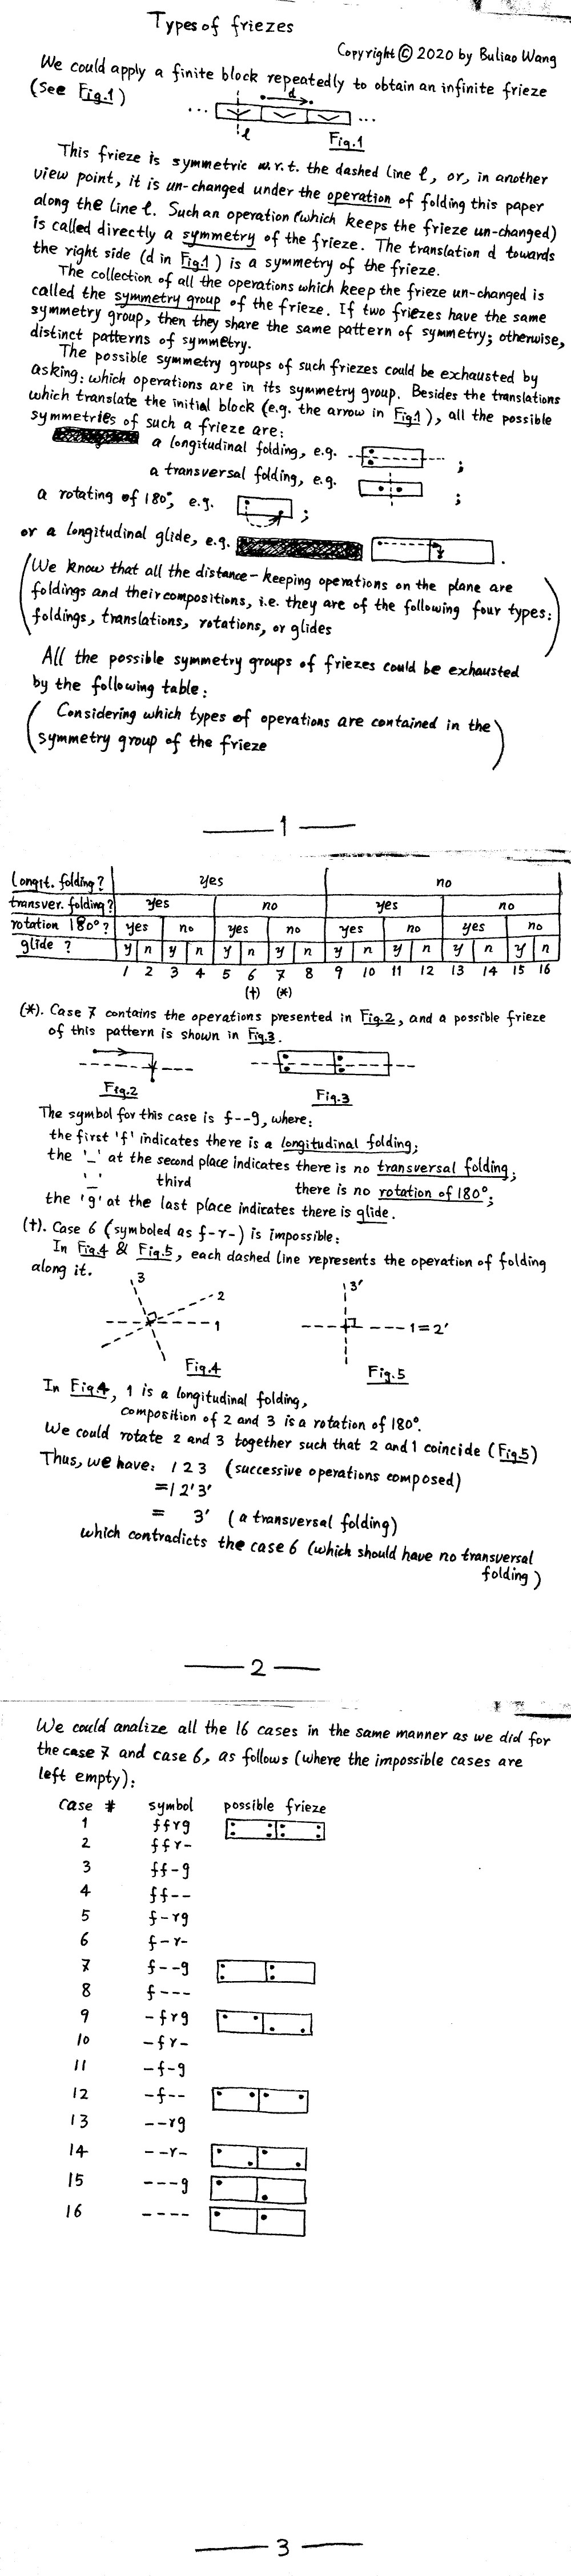 Types of friezes
Copyright © 2020 by Buliao Wang
We could apply a finite block repeatedly to obtain an infinite frieze
(See Fig.1)
d
... ...
l
Fig.1
This frieze is symmetric w.r.t. the dashed line l, or, in another
view point, it is un-changed under the operation of folding this paper
along the line l. Such an operation (which keeps the frieze un-changed)
is called directly a symmetry of the frieze. The translation d towards
the right side (d in Fig.1) is a symmetry of the frieze.
The collection of all the operations which keep the frieze un-changed is
called the symmetry group of the frieze. If two friezes have the same
symmetry group, then they share the same pattern of symmetry; otherwise,
distinct patterns of symmetry.
The possible symmetry groups of such friezes could be exhausted by
asking: which operations are in its symmetry group. Besides the translations
which translate the initial block (e.g. the arrow in Fig.1), all the possible
symmetries of such a frieze are:
a longitudinal folding, e.g. ;
a transversal folding, e.g. ;
a rotating of 180°, e.g. ;
or a longitudinal glide, e.g. .
(We know that all the distance-keeping operations on the plane are
foldings and their compositions, i.e. they are of the following four types:
foldings, translations, rotations, or glides)
All the possible symmetry groups of friezes could be exhausted
by the following table:
(Considering which types of operations are contained in the
symmetry group of the frieze)
1
longit. folding? yes no
transver. folding? yes no yes no
rotation 180°? yes no yes no yes no yes no
glide? y n y n y n y n y n y n y n y n
1 2 3 4 5 6 7 8 9 10 11 12 13 14 15 16
(†) (*)
(*). Case 7 contains the operations presented in Fig.2, and a possible frieze
of this pattern is shown in Fig.3.
Fig.2
Fig.3
The symbol for this case is f--g, where:
the first 'f' indicates there is a longitudinal folding;
the '_' at the second place indicates there is no transversal folding;
'_' third there is no rotation of 180°;
the 'g' at the last place indicates there is glide.
(†). Case 6 (symboled as f-r-) is impossible:
In Fig.4 & Fig.5, each dashed line represents the operation of folding
along it.
3
2
1
Fig.4
3'
1=2'
Fig.5
In Fig.4, 1 is a longitudinal folding,
composition of 2 and 3 is a rotation of 180°.
We could rotate 2 and 3 together such that 2 and 1 coincide (Fig.5)
Thus, we have: 1 2 3 (successive operations composed)
=1 2'3'
= 3' (a transversal folding)
which contradicts the case 6 (which should have no transversal
folding)
2
We could analize all the 16 cases in the same manner as we did for
the case 7 and case 6, as follows (where the impossible cases are
left empty):
case # symbol possible frieze
1 ffrg
2 ffr-
3 ff-g
4 ff--
5 f-rg
6 f-r-
7 f--g
8 f---
9 -frg
10 -fr-
11 -f-g
12 -f--
13 --rg
14 --r-
15 ---g
16 ----
3